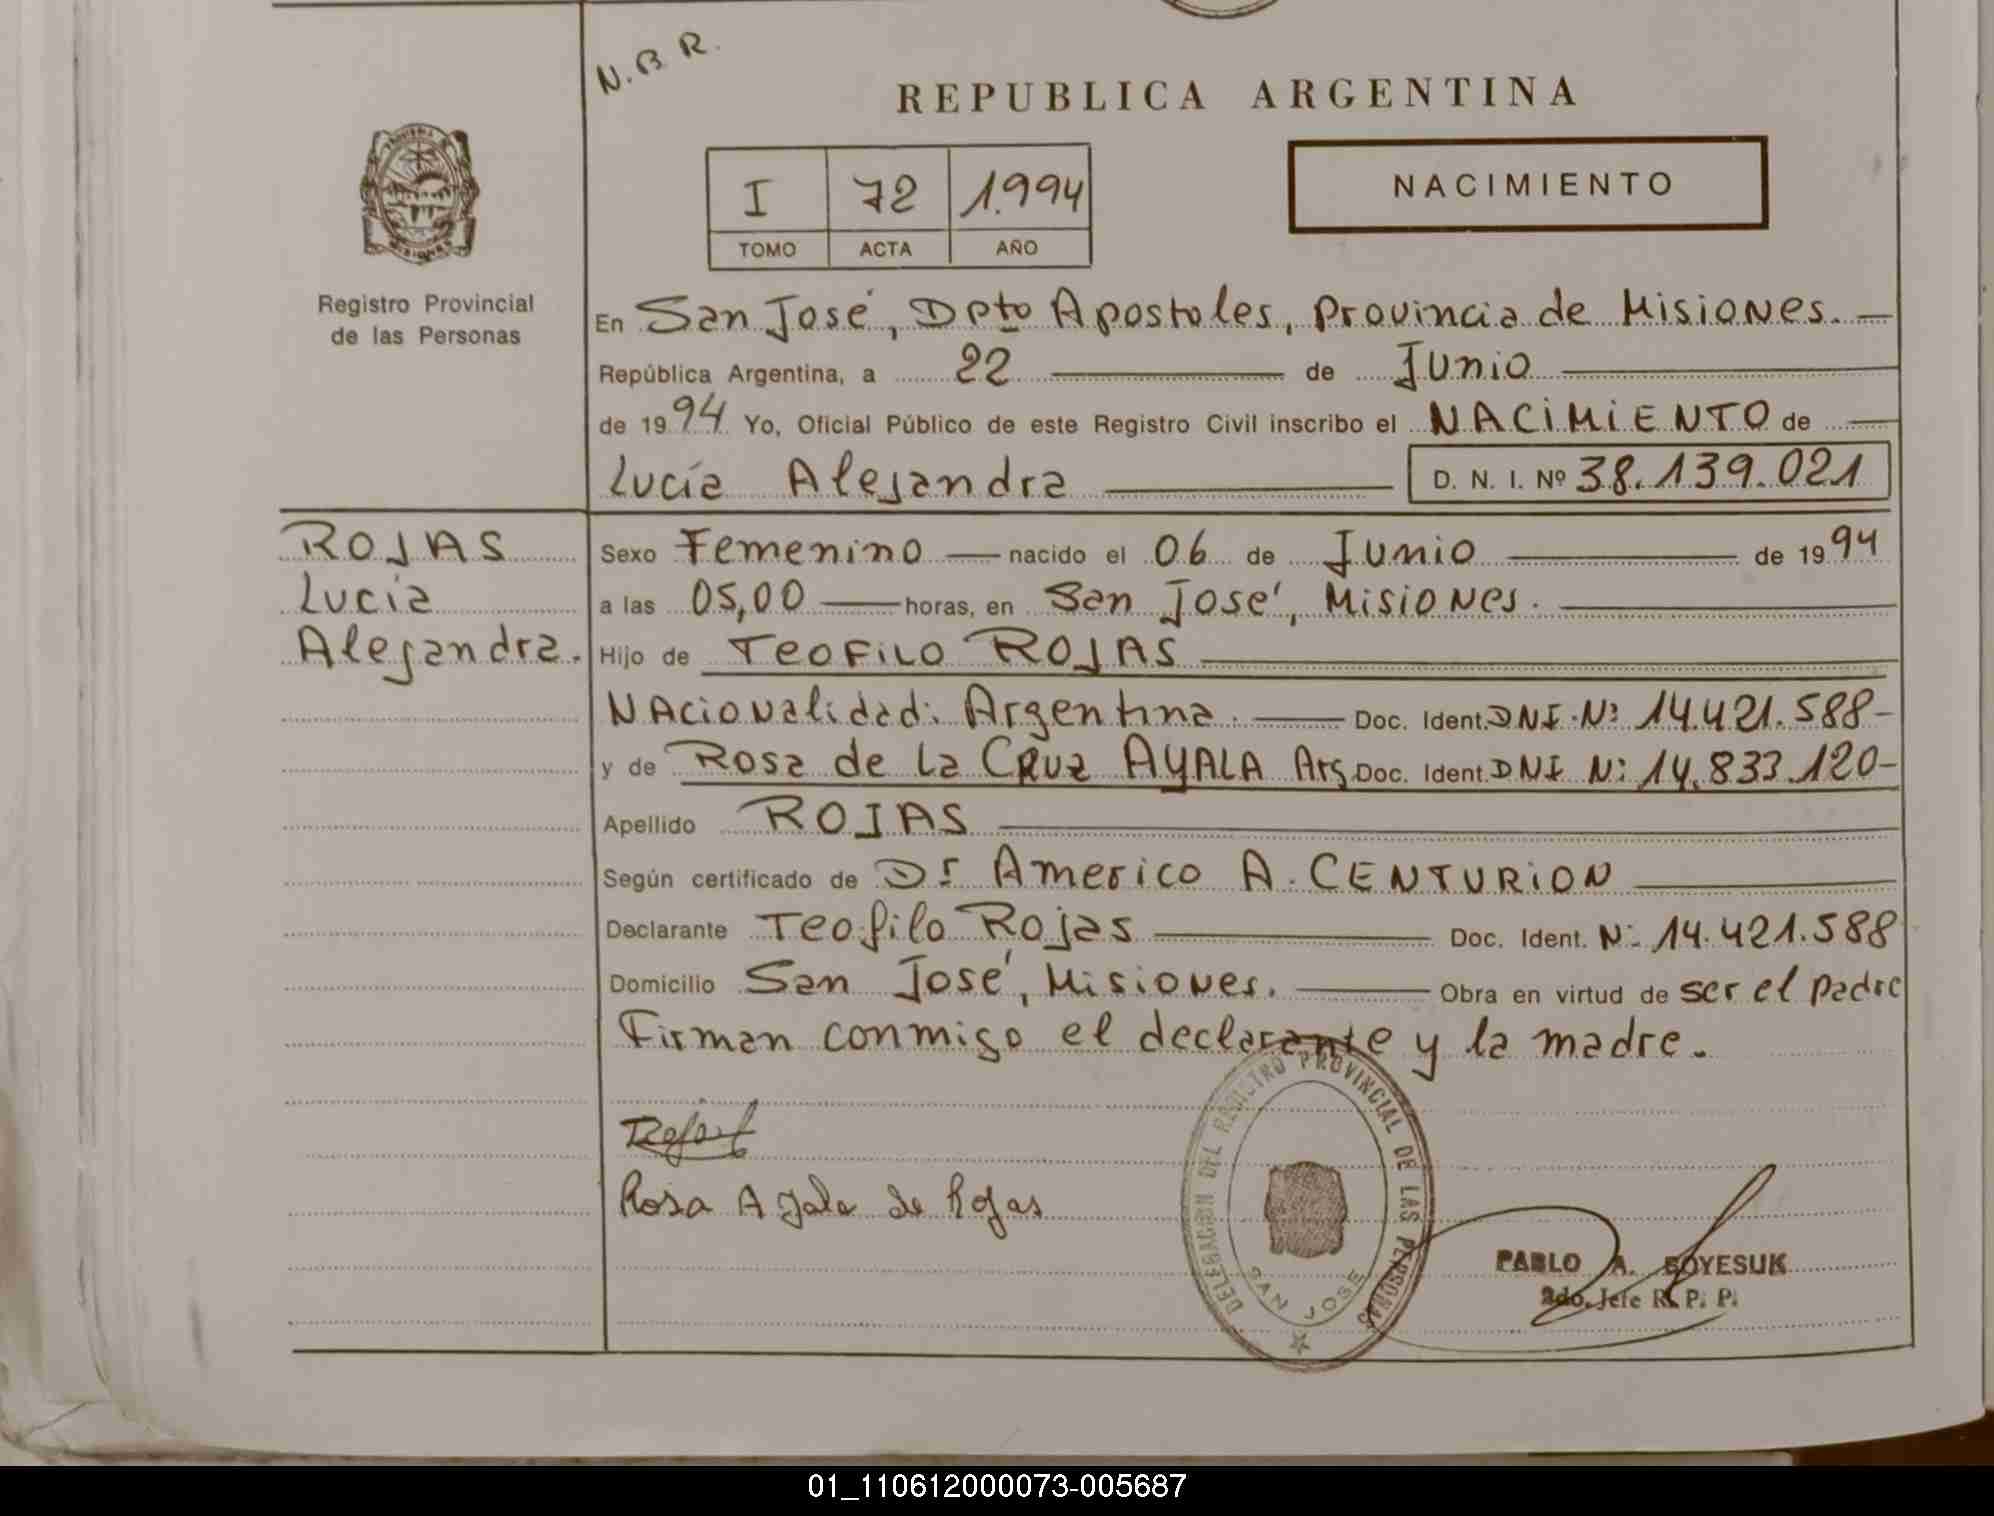 N.B.R.
REPUBLICA ARGENTINA
I 72 1.994
TOMO ACTA AÑO
NACIMIENTO
Registro Provincial
de las Personas
En San José, Dpto Apostoles, Provincia de Misiones.
República Argentina, a 22 de Junio
de 1994 Yo, Oficial Público de este Registro Civil inscribo el NACIMIENTO de
Lucía Alejandra D. N. I. Nº 38.139.021
ROJAS
Lucía
Alejandra.
Sexo Femenino nacido el 06 de Junio de 1994
a las 05,00 horas, en San José, Misiones.
Hijo de TEOFILO ROJAS
Nacionalidad: Argentina. Doc. Ident. DNI. Nº 14.421.588-
y de Rosa de La Cruz AYALA Arg. Doc. Ident. DNI Nº 14.833.120-
Apellido ROJAS
Según certificado de Dr Americo A. CENTURION
Declarante Teofilo Rojas Doc. Ident. Nº 14.421.588
Domicilio San José, Misiones. Obra en virtud de ser el padre
Firman conmigo el declarante y la madre.
Rosa Ayala de Rojas
DELEGACION DEL REGISTRO PROVINCIAL DE LAS PERSONAS
SAN JOSE
PABLO A. BOYESUK
2do. Jefe R. P. P.
01_110612000073-005687